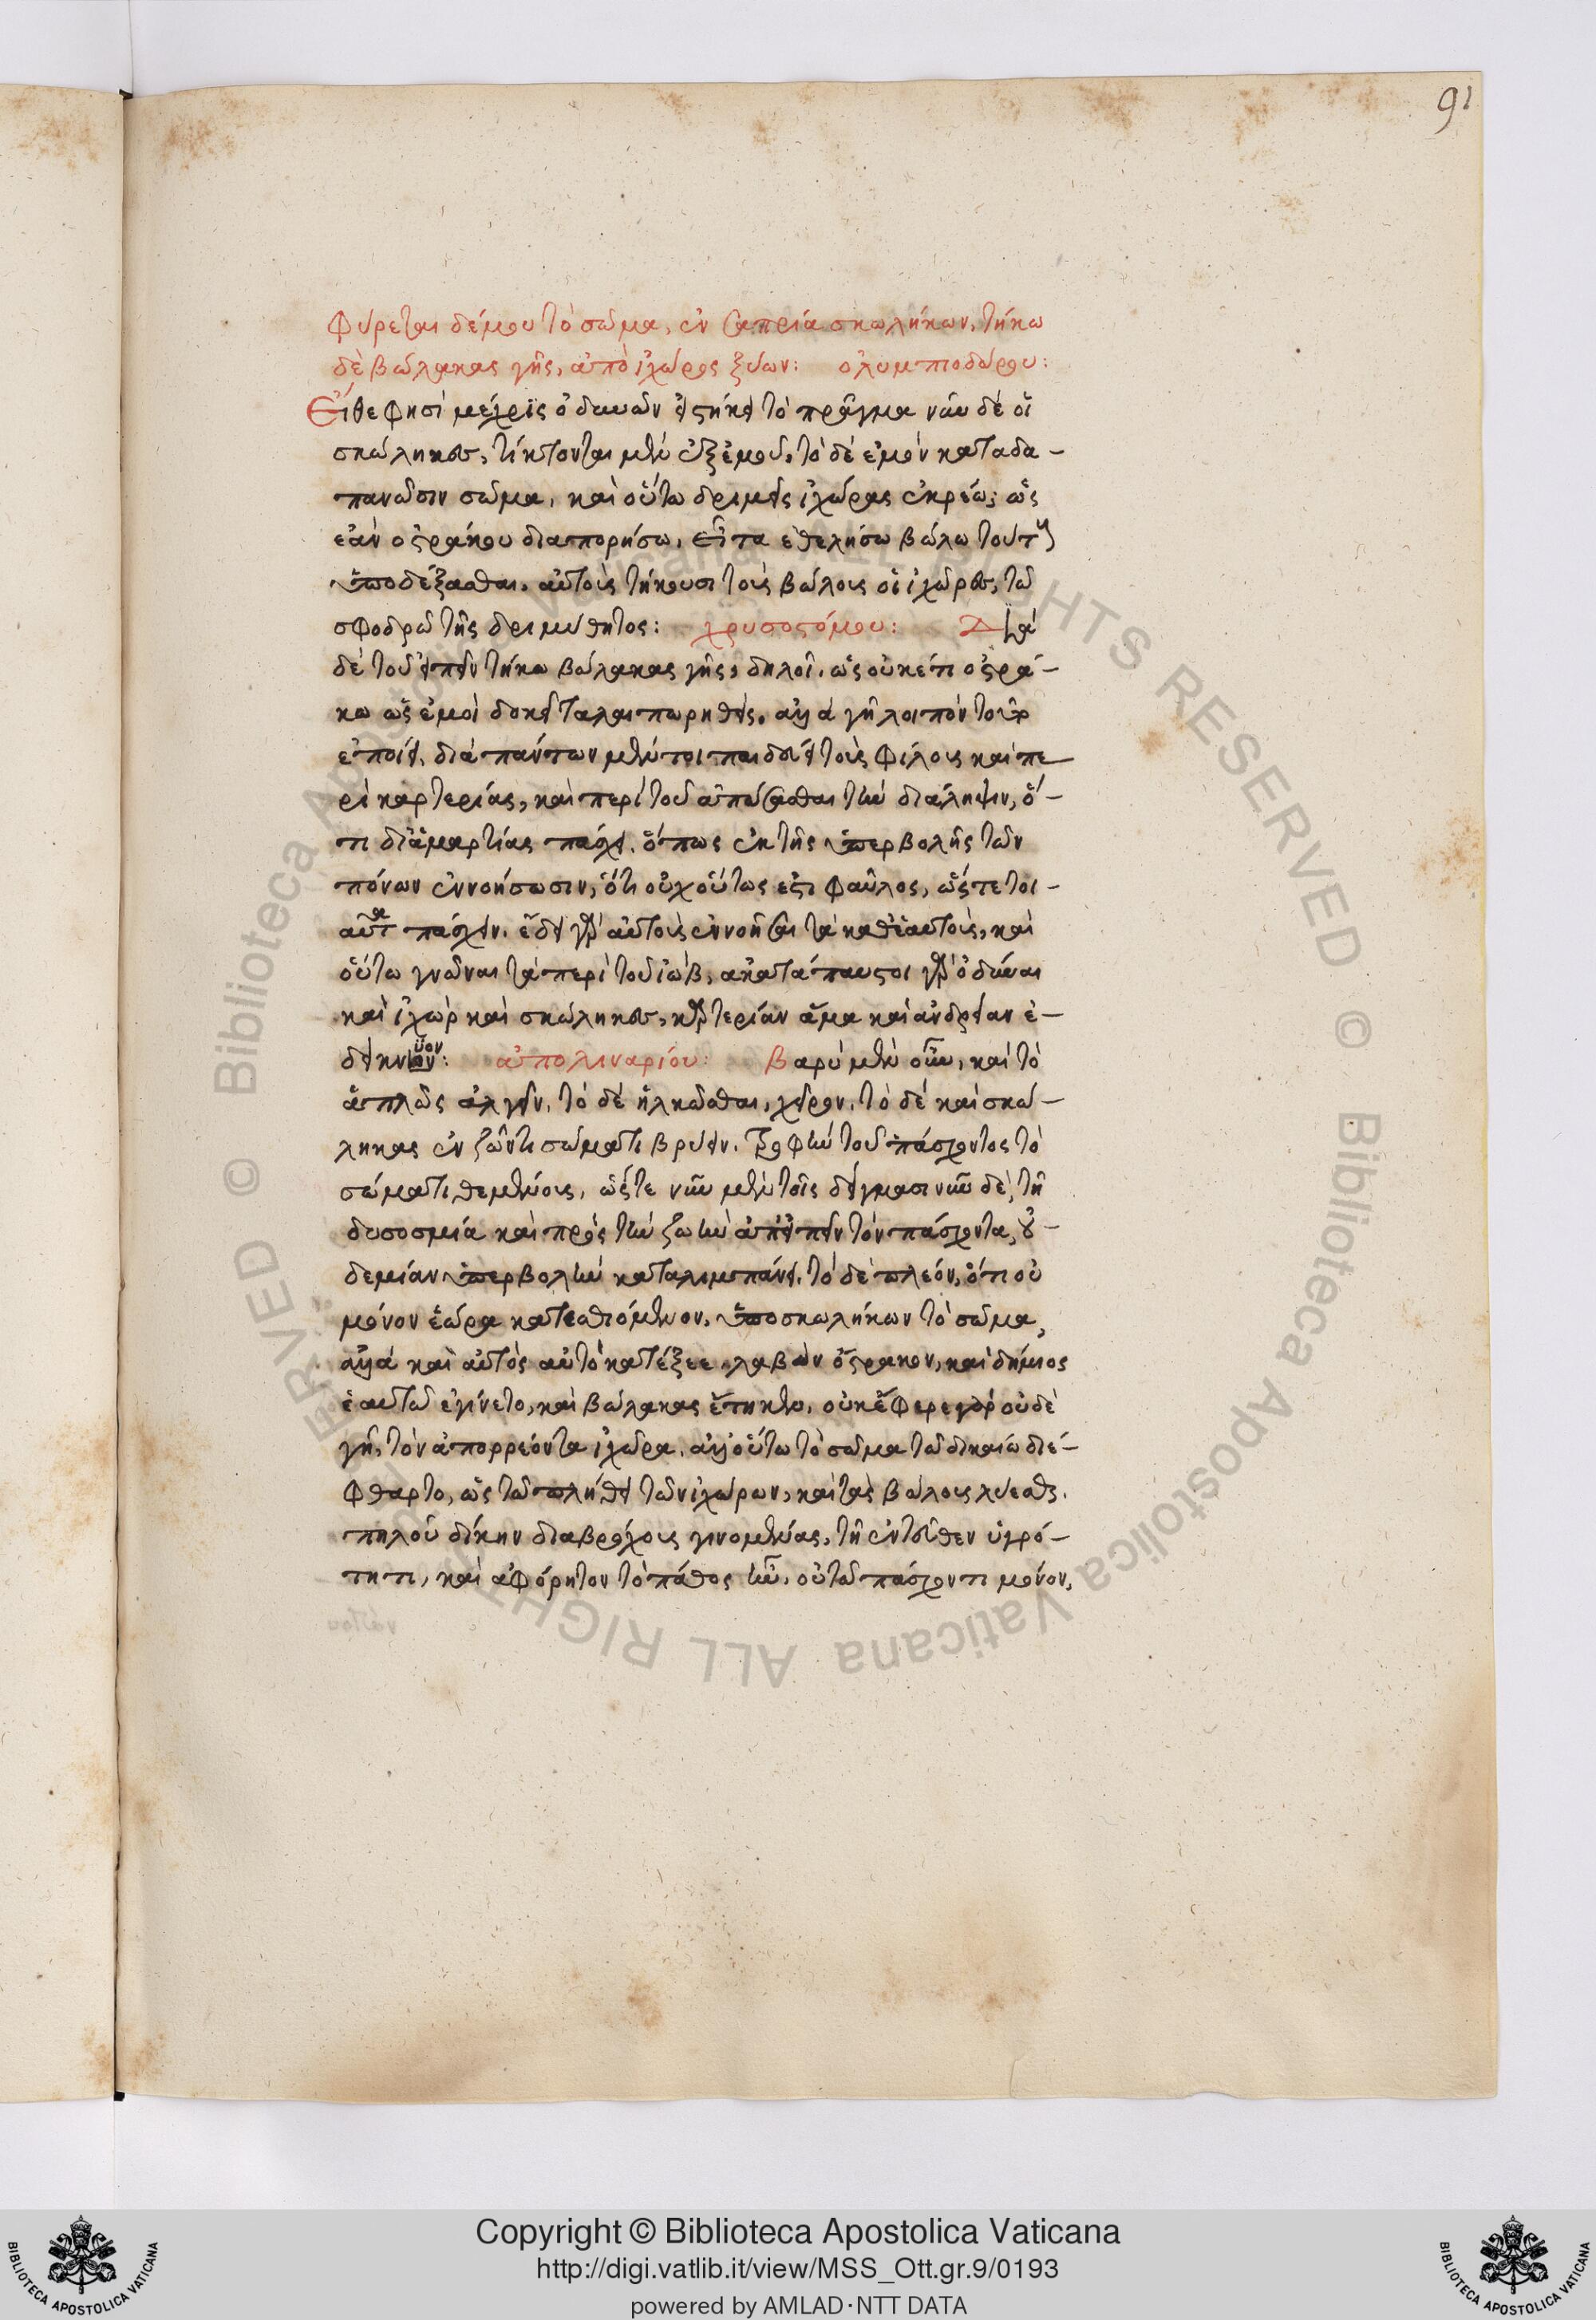 91
Φύρεται δέ μου τὸ σῶμα, ἐν σαπρία σκωλήκων, τήκω
δὲ βώλακας γῆς, ἀπὸ ἰχῶρος ξύων: ολυμπιοδώρου:
Εἴθε φησὶ μέχρις ὀδυνῶν εἱστήκει τὸ πρᾶγμα νῦν δὲ οἵ
σκώληκες, τίκτονται μὲν ἐξ ἐμοῦ, τὸ δὲ ἐμὸν καταδα-
πανῶσιν σῶμα, καὶ οὕτω δριμεῖς ἰχῶρας ἐκρέω, ὡς
ἐὰν ὀστράκου διαπορήσω, εἶτα ἐθελήσω βώλω τούτους
ὑποδέξασθαι, αὐτοὺς τήκουσι τοὺς βώλους οἵ ἰχῶρες, τῶ
σφοδρῶ τῆς δριμύτητος: χρυσοστόμου: Διὰ
δὲ τοῦ εἰπεῖν τήκω βώλακας γῆς, δηλοῖ, ὡς οὐκέτι ὀστρά-
κω ὡς ἐμοὶ δοκεῖ ταλαιπωρηθεὶς, ἀλλὰ γῆ λοιπὸν τοῦτο
ἐποίει, διὰ πάντων μέντοι παιδεύει τοὺς φίλους καὶ πε
ρὶ καρτερίας, καὶ περὶ τοῦ ἀπώσασθαι τὴν διάληψιν, ὅ-
τι δι ἁμαρτίας πάσχει, ὅπως ἐκ τῆς ὑπερβολῆς τῶν
πόνων ἐννοήσωσιν, ὅτι οὐχ οὕτως ἐστι φαῦλος, ὥστε τοι-
αῦτα πάσχειν, ἔδει γὰρ αὐτοὺς ἐννοῆσαι τὰ καθ ἑαυτοὺς, καὶ
οὕτω γνῶναι τὰ περὶ τοῦ ἰὼβ, ἀκατάπαυστοι γὰρ ὀδύναι
καὶ ἰχὼρ καὶ σκώληκες, καρτερίαν ἅμα καὶ ἀνδρείαν ἐ-
δείκνυον: ἀπολιναρίου: Βαρὺ μὲν οὖν, καὶ τὸ
ἁπλῶς ἀλγεῖν, τὸ δὲ ἡλκῶσθαι, χεῖρον, τὸ δὲ καὶ σκώ-
ληκας ἐν ζῶντι σώματι βρύειν, τροφὴν τοῦ πάσχοντος τὸ
σώματι θεμένοις, ὥστε νῦν μὲν τοῖς δείγμασι νῦν δὲ, τῆ
δυσοσμία καὶ πρὸς τὴν ζωὴν ἀπειπεῖν τὸν πάσχοντα, οὐ-
δεμίαν ὑπερβολὴν καταλιμπάνει, τὸ δὲ πλεόν, ὅτι οὐ
μόνον ἑώρα κατεσθιόμενον, ὑπὸ σκωλήκων τὸ σῶμα,
ἀλλὰ καὶ αὐτὸς αὐτὸ κατέξεε, λαβὼν ὄστρακον, καὶ δήμιος
ἑαυτῶ ἐγίνετο, καὶ βώλακας ἔτηκτο, οὐκ ἔφερε γὰρ οὐδὲ
γῆ, τὸν ἀπορρέοντα ἰχῶρα, ἀλλ οὕτω τὸ σῶμα τῶ δικαίω διέ-
φθαρτο, ὡς τῶ πλήθει τῶν ἰχώρων, καὶ τὰς βώλους λύεσθαι,
πηλοῦ δίκην διαβρόχους γινομένας, τῆ ἐντεῦθεν ὑγρό-
τητι, καὶ ἀφόρητον τὸ πάθος ἦν, οὐ τῶ πάσχοντι μόνον,
Copyright © Biblioteca Apostolica Vaticana
http://digi.vatlib.it/view/MSS_Ott.gr.9/0193
powered by AMLAD·NTT DATA